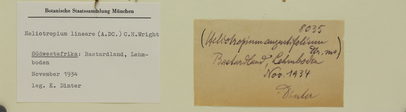 Botanische Staatssammlung München
Heliotropium lineare (A.DC.) C.H.Wright
Südwestafrika: Bastardland, Lehm-
boden
November 1934
Leg. K. Dinter
8035
(Heliotropium angustifolium
Bastardland, Lehmboden
Nov. 1934
Dinter